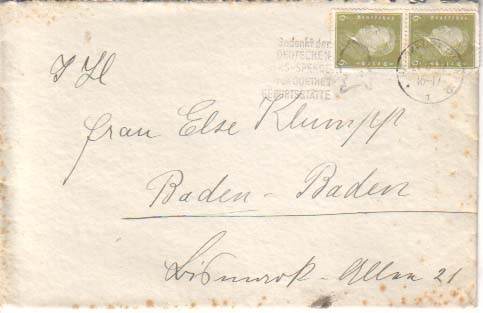 6 Deutsches Reich 6 Deutsches Reich
Gedenkt der
DEUTSCHEN
VOLKS-SPENDE
FÜR GOETHES
GEBURTSSTÄTTE
16-17
I H
Frau Else Klumpp
Baden-Baden
Bismarck-Allee 21